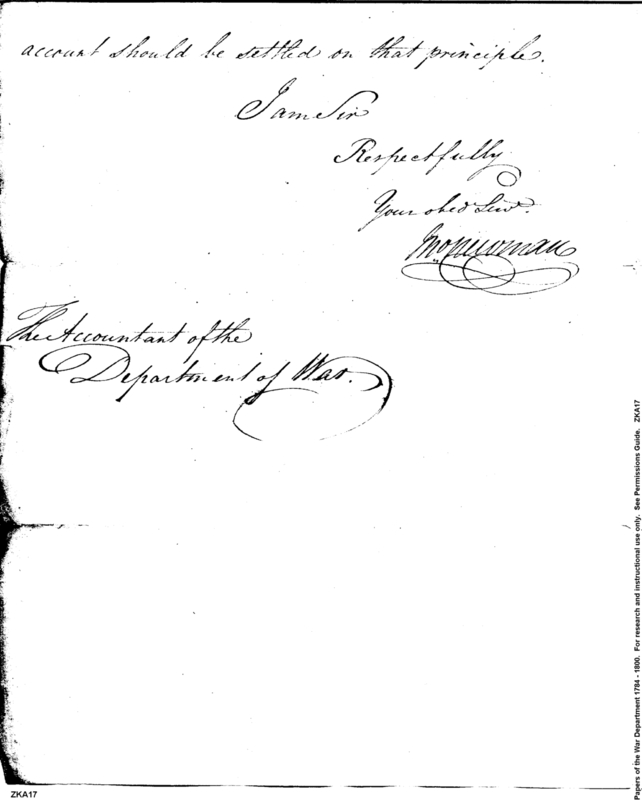 account should be settled on that principle.
I am Sir
Respectfully
Your obed Serv.
Jno Newman
The Accountant of the
Department of War.
Papers of the War Department 1784 - 1800. For research and instructional use only. See Permissions Guide. ZKA17
ZKA17